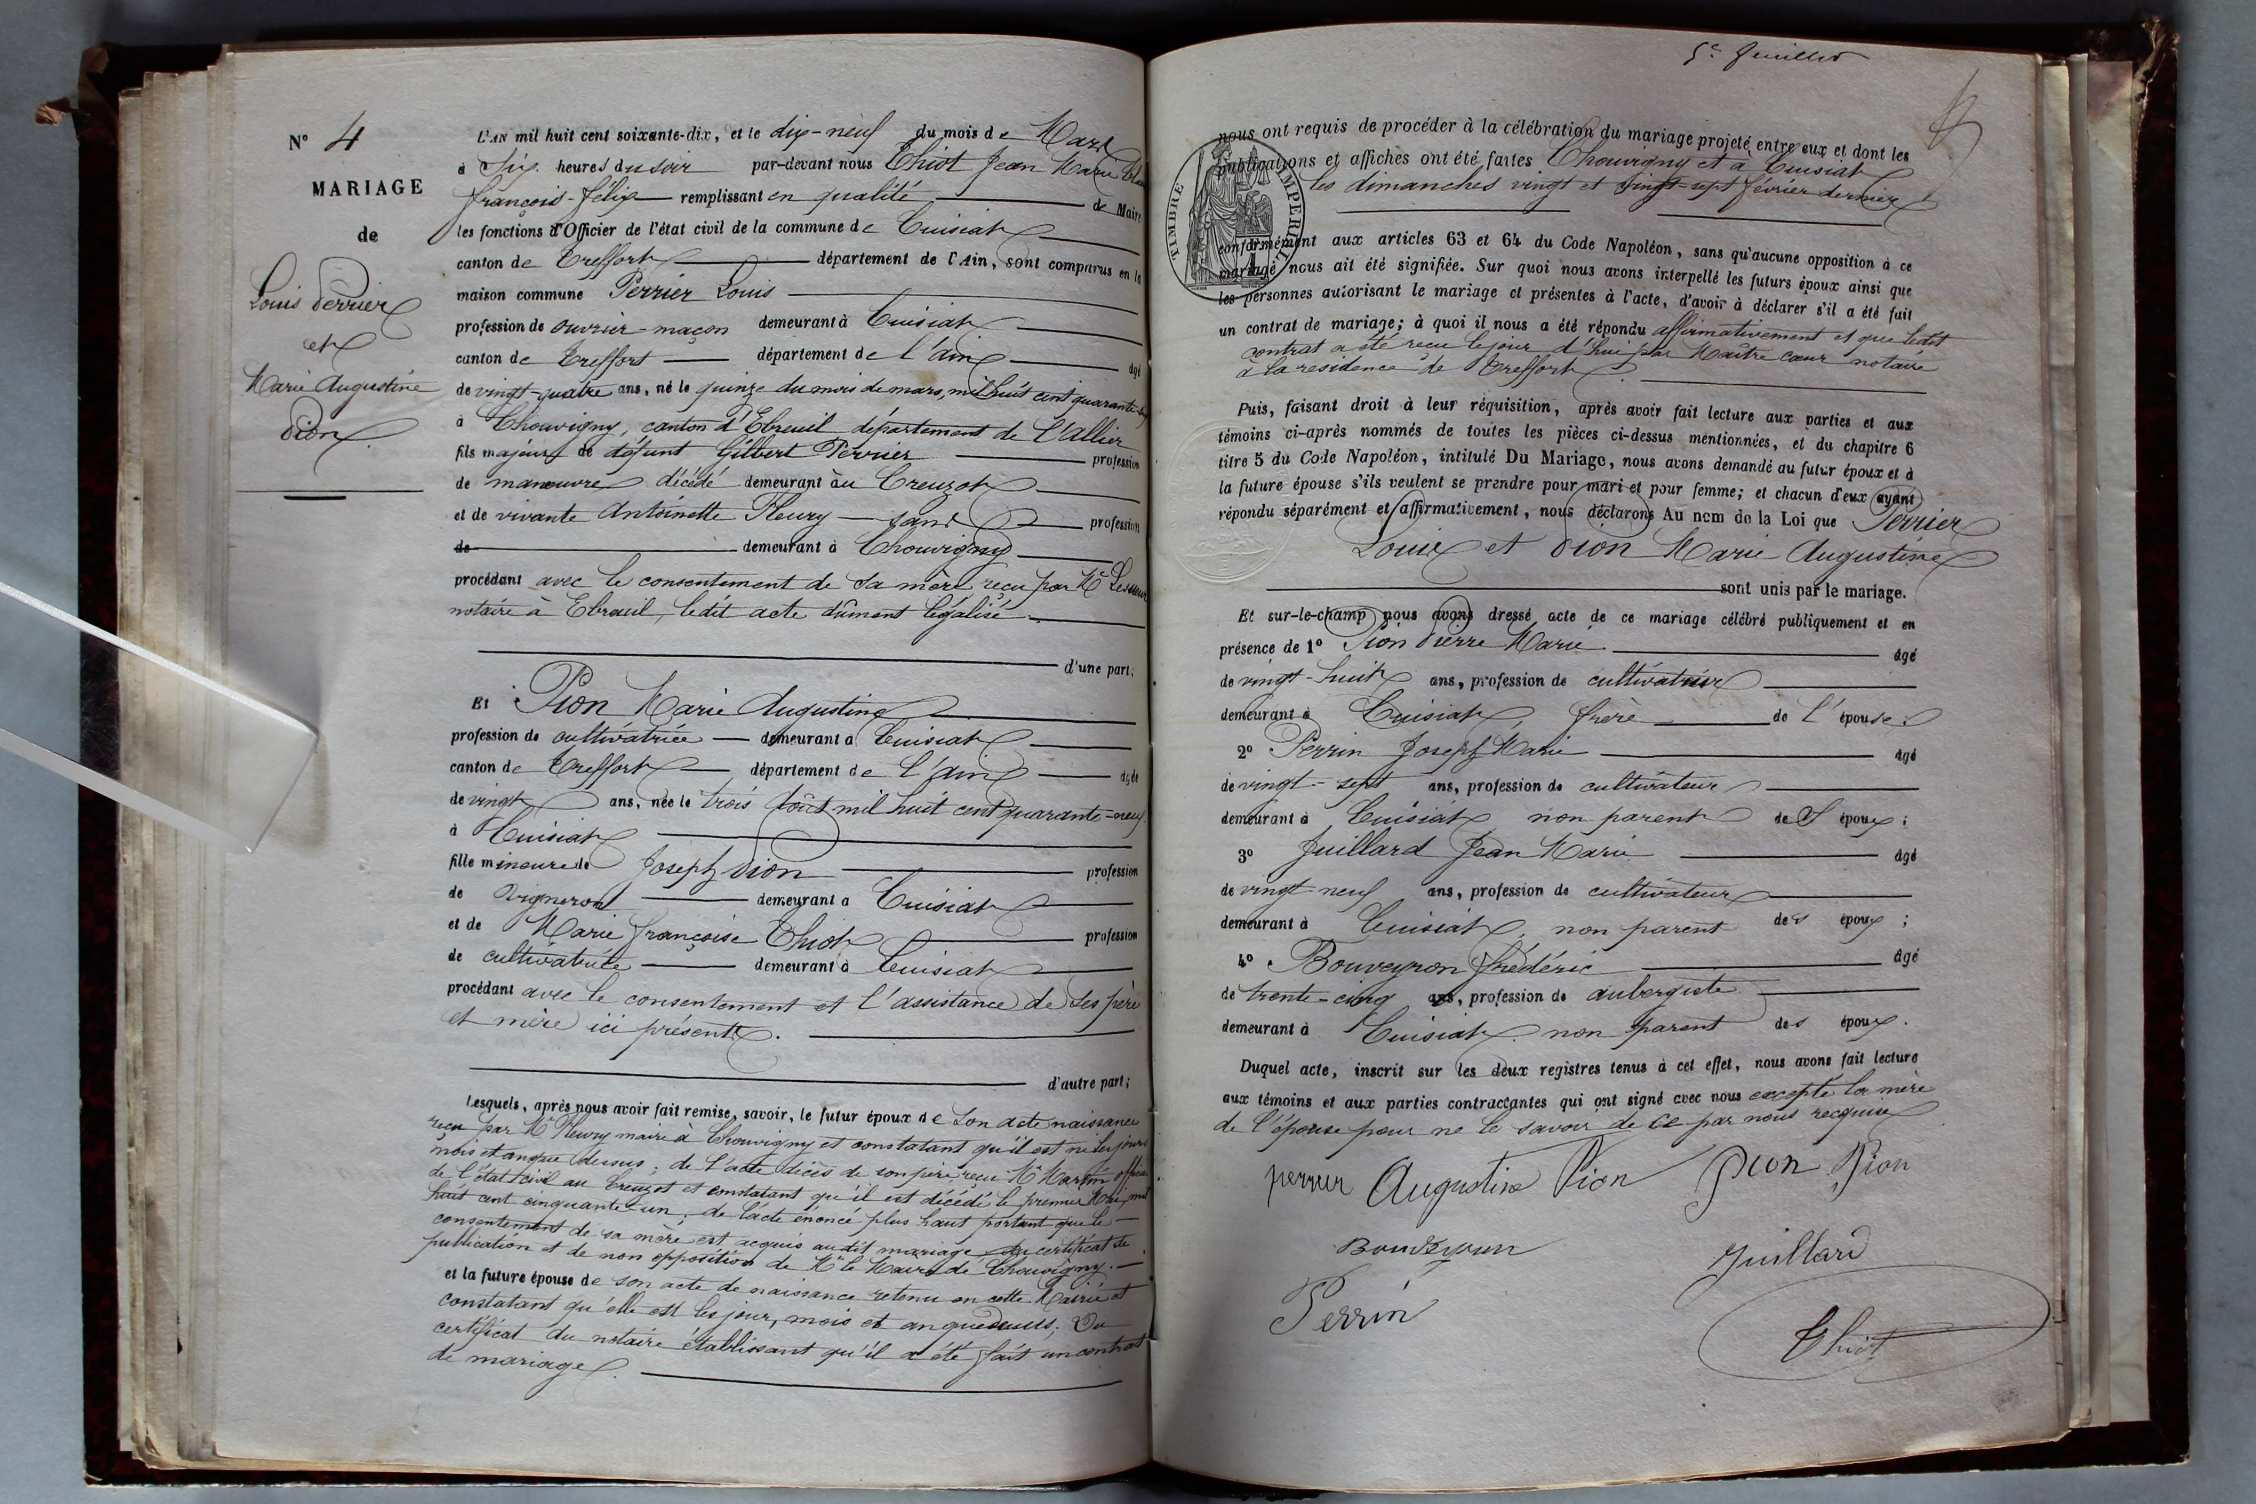 N° 4
MARIAGE
de
Louis Perrier
et
Marie Augustine
Pion
L'AN mil huit cent soixante-dix, et le dix-neuf du mois de Mars
à Six heures du soir par-devant nous Thiot Jean Marie
françois-félix remplissant en qualité de Maire
les fonctions d'Officier de l'état civil de la commune de Cuisiat
canton de Treffort département de l'Ain, sont comparus en la
maison commune Perrier Louis
profession de ouvrier-maçon demeurant à Cuisiat
canton de Treffort département de l'ain âgé
de vingt-quatre ans, né le quinze du mois de mars, mil huit cent quarante-
à Chouvigny, canton d'Ebreuil département de l'Allier
fils majeur de défunt Gilbert Perrier profession
de manœuvre décédé demeurant au Creuzot
et de vivante Antoinette Fleury sans profession
de demeurant à Chouvigny
procédant avec le consentement de sa mère reçu par Me
notaire à Ebreuil, ledit acte dûment légalisé
d'une part;
Et Pion Marie Augustine
profession de cultivatrice demeurant à Cuisiat
canton de Treffort département de l'ain âgée
de vingt ans, née le trois août mil huit cent quarante-neuf
à Cuisiat
fille mineure de Joseph Pion profession
de vigneron demeurant à Cuisiat
et de Marie françoise Thiot profession
de cultivatrice demeurant à Cuisiat
procédant avec le consentement et l'assistance de ses père
et mère ici présents.
d'autre part;
Lesquels, après nous avoir fait remise, savoir, le futur époux de son acte naissance
reçu par Mr Fleury maire à Chouvigny et constatant qu'il est né les jour
mois et an que dessus; de l'acte décès de son père, reçu Mr Martin officier
de l'état civil au Creuzot et constatant qu'il est décédé le premier Mai, mil
huit cent cinquante-un; de l'acte énoncé plus haut portant que le
consentement de sa mère est acquis audit mariage du certificat de
publication et de non opposition de Mr le Maire de Chouvigny.
et la future épouse de son acte de naissance retenu en cette Mairie et
constatant qu'elle est les jour, mois et an que dessus; Du
certificat du notaire établissant qu'il a été fait un contrat
de mariage
5e feuillet
TIMBRE IMPERIAL
nous ont requis de procéder à la célébration du mariage projeté entre eux et dont les
publications et affiches ont été faites Chouvigny et à Cuisiat
les dimanches vingt et vingt-sept février dernier
conformément aux articles 63 et 64 du Code Napoléon, sans qu'aucune opposition à ce
mariage nous ait été signifiée. Sur quoi nous avons interpellé les futurs époux ainsi que
les personnes autorisant le mariage et présentes à l'acte, d'avoir à déclarer s'il a été fait
un contrat de mariage; à quoi il nous a été répondu affirmativement et que ledit
contrat a été reçu le jour d'hui par Maître cœur notaire
à la résidence de Treffort
Puis, faisant droit à leur réquisition, après avoir fait lecture aux parties et aux
témoins ci-après nommés de toutes les pièces ci-dessus mentionnées, et du chapitre 6
titre 5 du Code Napoléon, intitulé Du Mariage, nous avons demandé au futur époux et à
la future épouse s'ils veulent se prendre pour mari et pour femme; et chacun d'eux ayant
répondu séparément et affirmativement, nous déclarons Au nom de la Loi que Perrier
Louis et Pion Marie Augustine
sont unis par le mariage.
Et sur-le-champ nous avons dressé acte de ce mariage célébré publiquement et en
présence de 1° Pion Pierre Marie âgé
de vingt-huit ans, profession de cultivateur
demeurant à Cuisiat, frère de l'épouse;
2° Perrin Joseph Marie âgé
de vingt-sept ans, profession de cultivateur
demeurant à Cuisiat non parent des époux;
3° Juillard Jean Marie âgé
de vingt-neuf ans, profession de cultivateur
demeurant à Cuisiat, non parent des époux;
4° Bouveyron frédéric âgé
de trente-cinq ans, profession de aubergiste
demeurant à Cuisiat non parent des époux.
Duquel acte, inscrit sur les deux registres tenus à cet effet, nous avons fait lecture
aux témoins et aux parties contractantes qui ont signé avec nous excepté la mère
de l'épouse pour ne le savoir de ce par nous requise
perrier Augustine Pion Pion Pion
Bouveyron Juillard
Perrin
Thiot